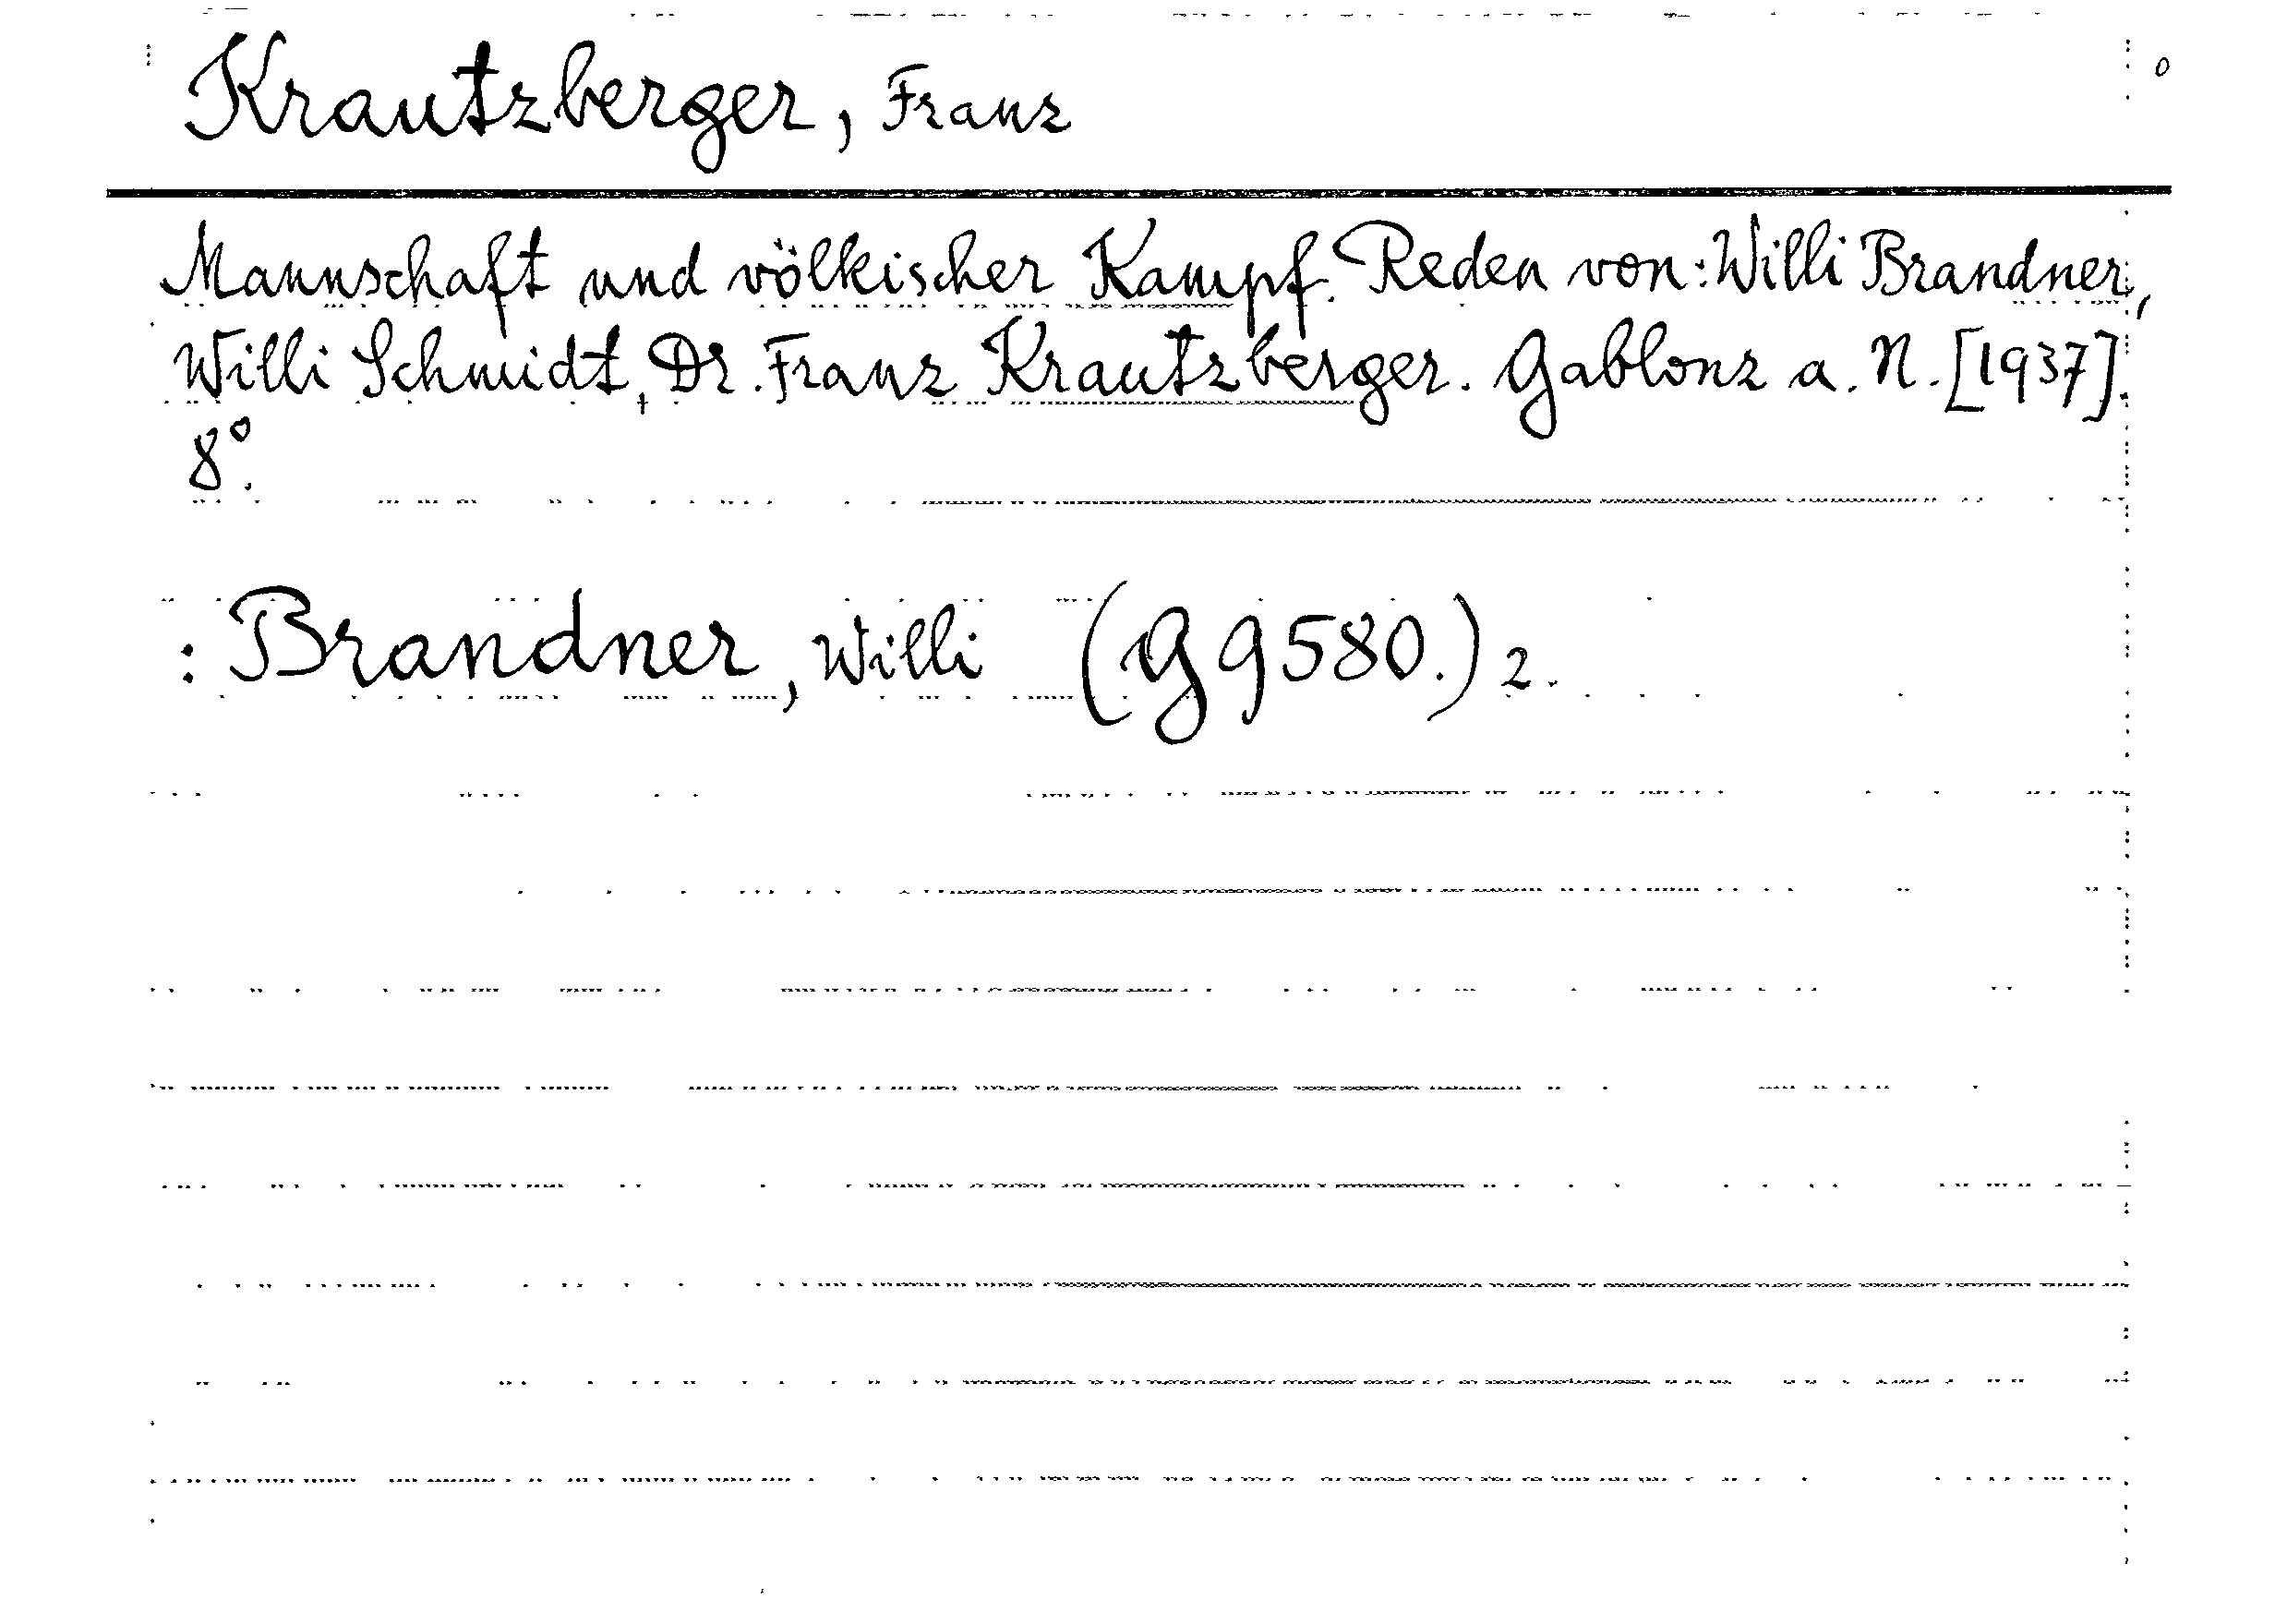 Krautzberger, Franz
Mannschaft und völkischer Kampf. Reden von: Willi Brandner,
Willi Schmidt, Dr. Franz Krautzberger. Gablonz a. N. [1937].
8°.
: Brandner, Willi (G 9580.) 2.